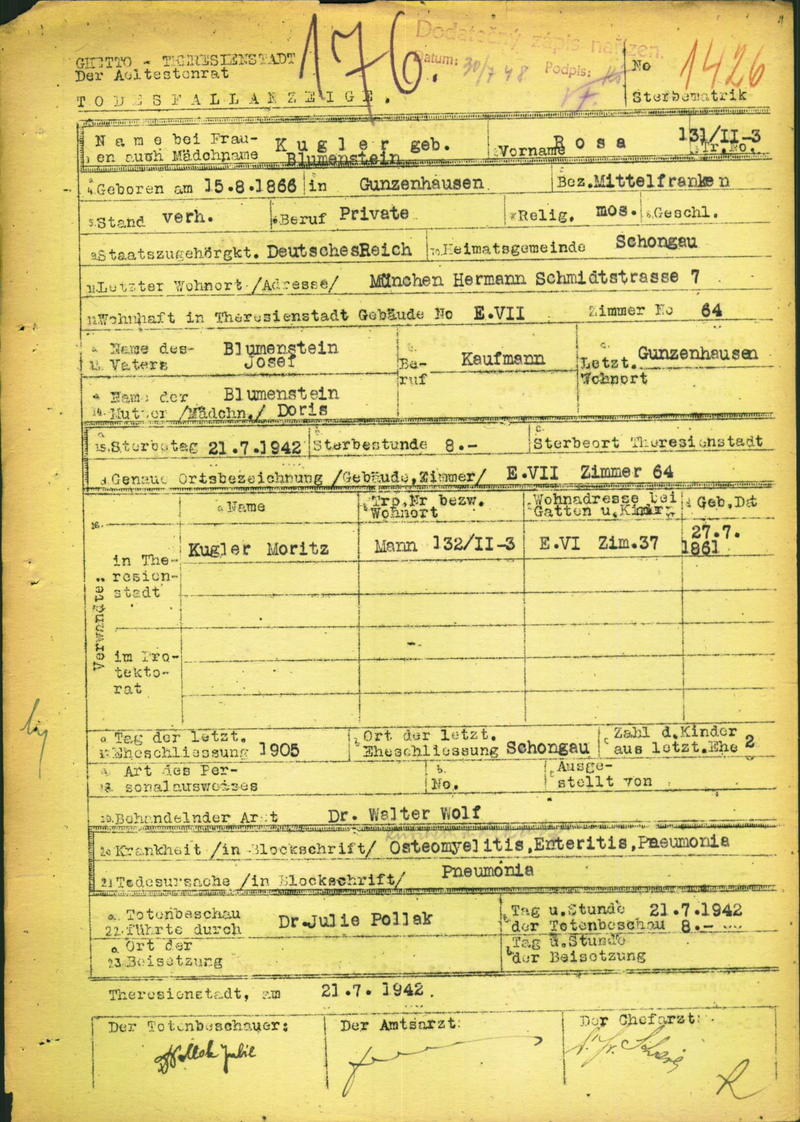 176.
Dodatečný zápis nařízen.
Datum: 30/7 48 Podpis:
GHETTO - THERESIENSTADT
Der Aeltestenrat
TODESFALLANZEIGE.
No 1426
Sterbematrik
Name bei Frau- Kugler geb. Vorname Rosa 131/II-3
en auch Mädchname Blumenstein Tr.No.
4. Geboren am 15.8.1866 in Gunzenhausen Bez. Mittelfranken
5. Stand verh. 6. Beruf Private 7. Relig. mos. 8. Geschl.
9. Staatszugehörgkt. DeutschesReich 10. Heimatsgemeinde Schongau
11. Letzter Wohnort /Adresse/ München Hermann Schmidtstrasse 7
12. Wohnhaft in Theresienstadt Gebäude No E.VII Zimmer No 64
a. Name des- Blumenstein b. Be- Kaufmann c. Letzt. Gunzenhausen
13. Vaters Josef ruf Wohnort
a. Name der Blumenstein
14. Mutter /Mädchn./ Doris
a. 15. Sterbetag 21.7.1942 b. Sterbestunde 8.- c. Sterbeort Theresienstadt
d. Genaue Ortsbezeichnung /Gebäude, Zimmer/ E.VII Zimmer 64
16. a. Name b. Trp.Nr bezw. c. Wohnadresse bei d. Geb.Dat
Wohnort Gatten u. Kindr.
Verwandte:
in The-
resien-
stadt
Kugler Moritz Mann 132/II-3 E.VI Zim.37 27.7.
1861
im Pro-
tekto-
rat
a. Tag der letzt. b. Ort der letzt. c. Zahl d. Kinder
17. Eheschliessung 1905 Eheschliessung Schongau aus letzt. Ehe 2
a. Art des Per- b. c. Ausge-
18. sonalausweises No. stellt von
19. Behandelnder Arzt Dr. Walter Wolf
20. Krankheit /in Blockschrift/ Osteomyelitis,Enteritis,Pneumonia
21. Todesursache /in Blockschrift/ Pneumonia
a. Totenbeschau Dr.Julie Pollak b. Tag u. Stunde 21.7.1942
22. führte durch der Totenbeschau 8.-
a. Ort der b. Tag u. Stunde
23. Beisetzung der Beisetzung
Theresienstadt, am 21.7.1942.
Der Totenbeschauer: Der Amtsarzt: Der Chefarzt:
Pollak Julie
R